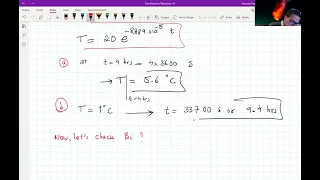 T = 20 e^-8889×10^-8 t
a at t = 4 hrs = 4x3600 s
→ T| t=4hrs = 5.6 °C
b T = 1°C → t = 33700 s or 9.4 hrs
Now, let's check Bi ?